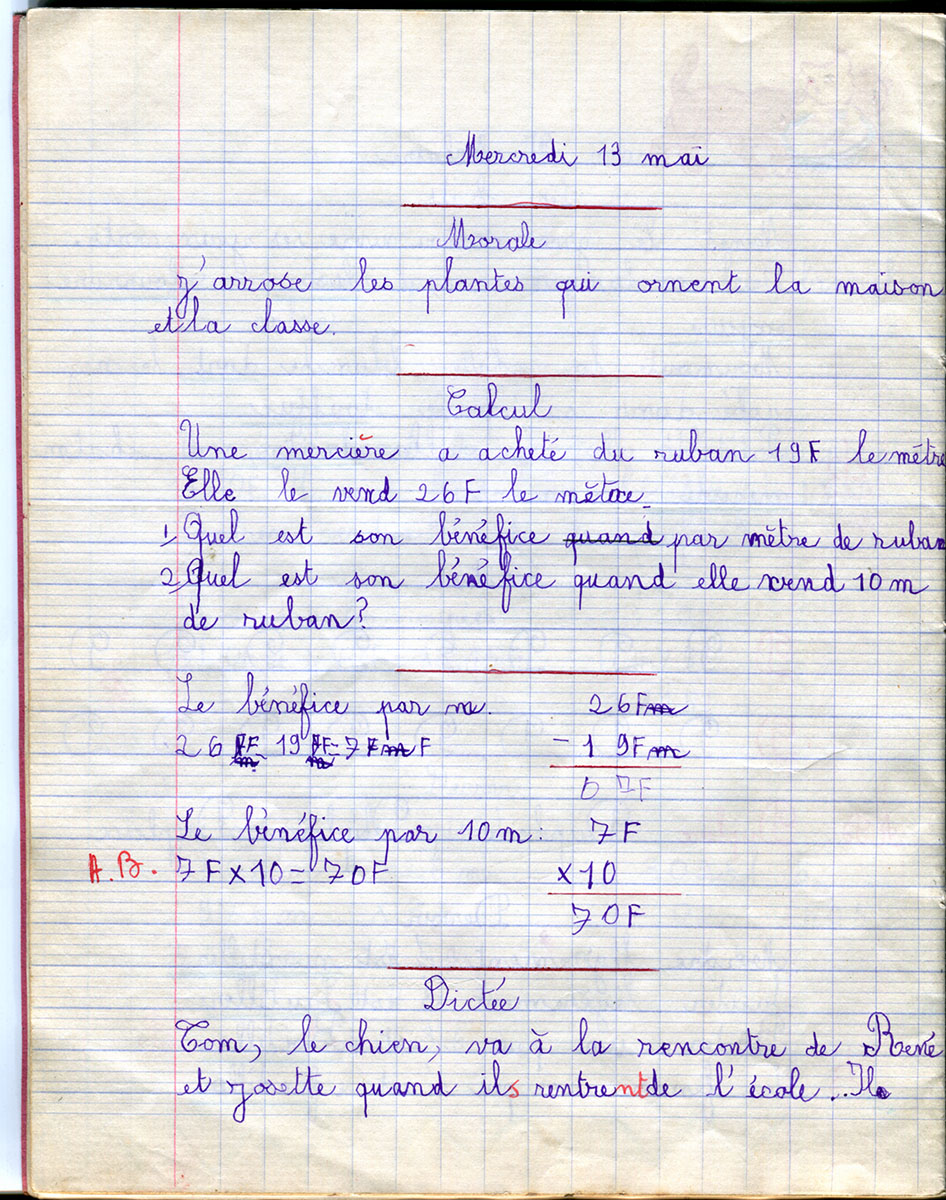 Mercredi 13 mai
Morale
J'arrose les plantes qui ornent la maison
et la classe.
Calcul
Une mercière a acheté du ruban 19F le mètre
Elle le vend 26F le mètre.
1 Quel est son bénéfice quand par mètre de ruban
2 Quel est son bénéfice quand elle vend 10 m
de ruban?
Le bénéfice par m. 26F
26 - 19 = 7 F - 19F
07F
Le bénéfice par 10 m: 7F
A.B. 7F x 10 = 70F x 10
70F
Dictée
Tom, le chien, va à la rencontre de René
et Josette quand ils rentrent de l'école. Il